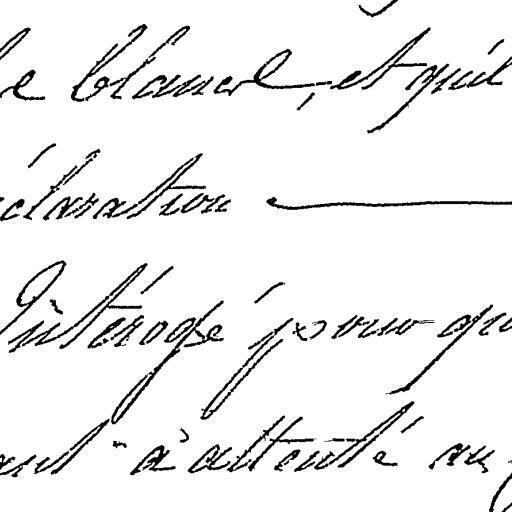 le blancd, et qu'il
éclaration
Intérogé pour qu
ant à attenté au